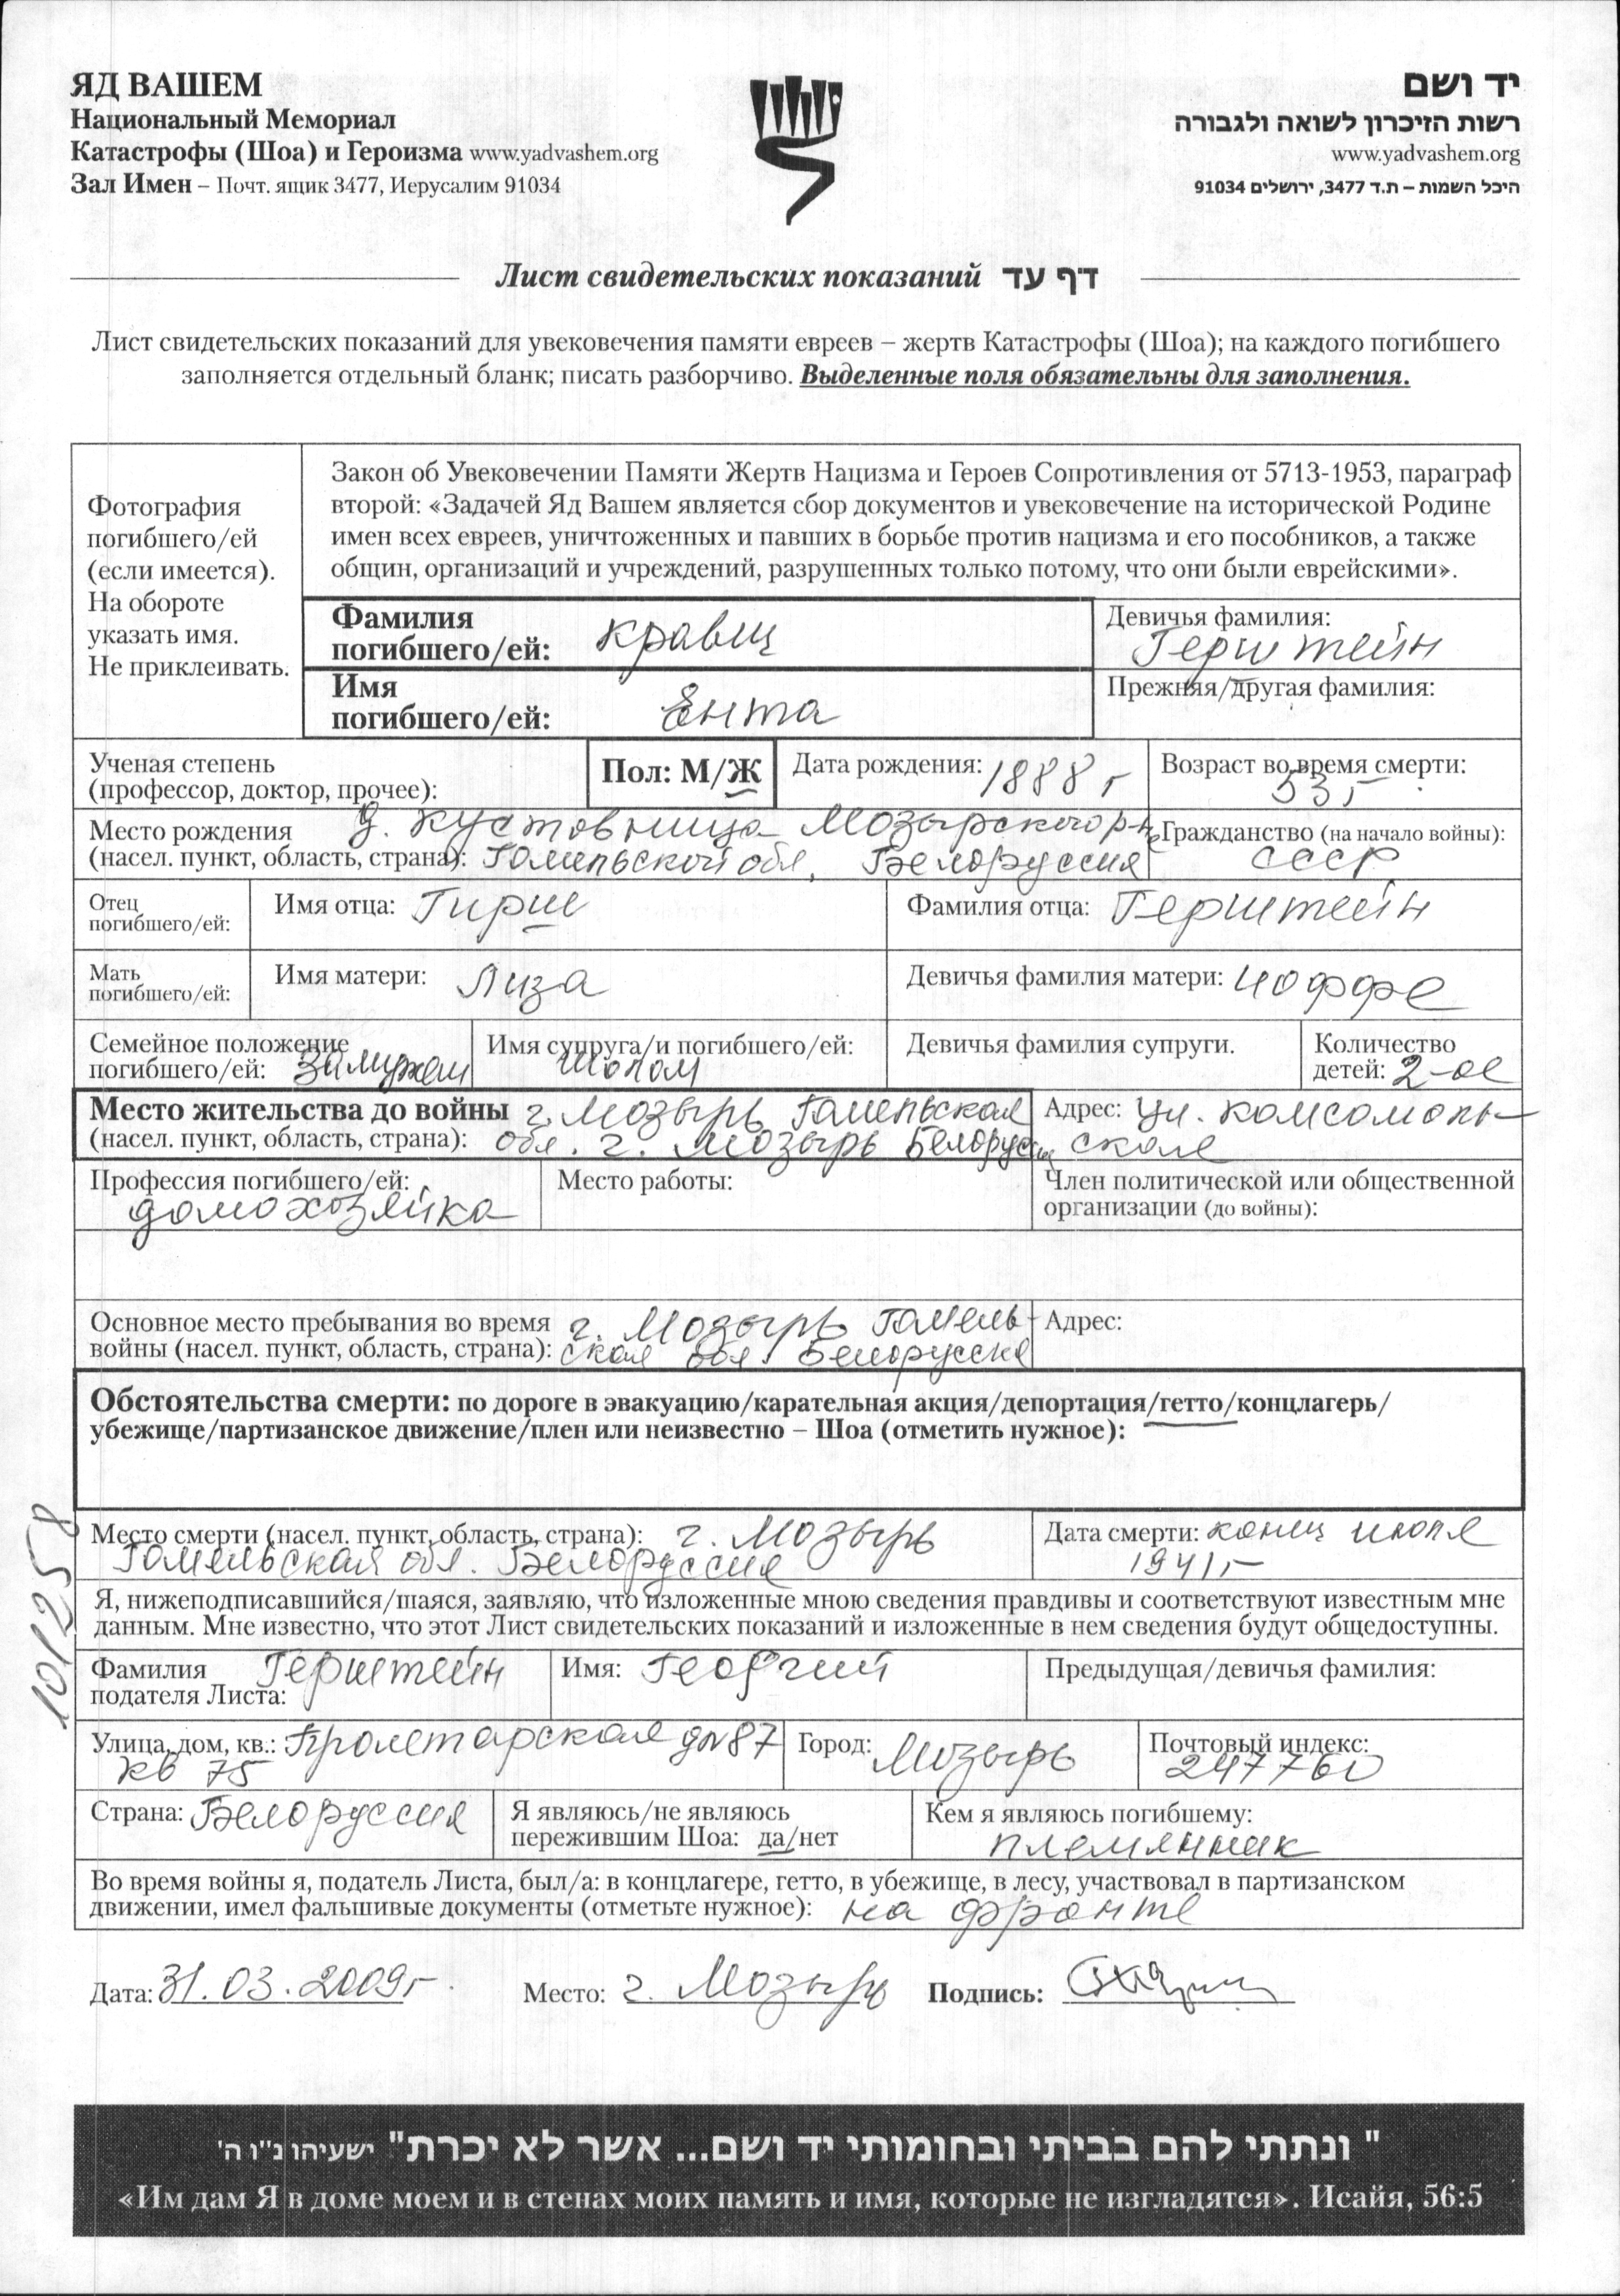 ЯД ВАШЕМ
Национальный Мемориал
Катастрофы (Шоа) и Героизма www.yadvashem.org
Зал Имен – Почт. ящик 3477, Иерусалим 91034
יד ושם
רשות הזיכרון לשואה ולגבורה
www.yadvashem.org
היכל השמות – ת.ד 3477, ירושלים 91034
Лист свидетельских показаний דף עד
Лист свидетельских показаний для увековечения памяти евреев – жертв Катастрофы (Шоа); на каждого погибшего
заполняется отдельный бланк; писать разборчиво. Выделенные поля обязательны для заполнения.
Фотография
погибшего/ей
(если имеется).
На обороте
указать имя.
Не приклеивать.
Закон об Увековечении Памяти Жертв Нацизма и Героев Сопротивления от 5713-1953, параграф
второй: «Задачей Яд Вашем является сбор документов и увековечение на исторической Родине
имен всех евреев, уничтоженных и павших в борьбе против нацизма и его пособников, а также
общин, организаций и учреждений, разрушенных только потому, что они были еврейскими».
Фамилия
погибшего/ей: Кравец
Девичья фамилия:
Герштейн
Имя
погибшего/ей: Ента
Прежняя/другая фамилия:
Ученая степень
(профессор, доктор, прочее):
Пол: М/Ж
Дата рождения: 1888 г
Возраст во время смерти:
53 г.
Место рождения д. Кустовница Мозырского р-н
(насел. пункт, область, страна): Гомельской обл. Белоруссия
Гражданство (на начало войны):
СССР
Отец
погибшего/ей:
Имя отца: Гирш
Фамилия отца: Герштейн
Мать
погибшего/ей:
Имя матери: Лиза
Девичья фамилия матери: Иоффе
Семейное положение
погибшего/ей: замужем
Имя супруга/и погибшего/ей:
Шолом
Девичья фамилия супруги.
Количество
детей: 2-ое
Место жительства до войны г. Мозырь Гомельская
(насел. пункт, область, страна): обл. г. Мозырь Белоруссия
Адрес: ул. Комсомоль-
ская
Профессия погибшего/ей:
домохозяйка
Место работы:
Член политической или общественной
организации (до войны):
Основное место пребывания во время г. Мозырь Гомель-
войны (насел. пункт, область, страна): ская обл. Белоруссия
Адрес:
Обстоятельства смерти: по дороге в эвакуацию/карательная акция/депортация/гетто/концлагерь/
убежище/партизанское движение/плен или неизвестно – Шоа (отметить нужное):
101258
Место смерти (насел. пункт, область, страна): г. Мозырь
Гомельская обл. Белоруссия
Дата смерти: конец июля
1941 г
Я, нижеподписавшийся/шаяся, заявляю, что изложенные мною сведения правдивы и соответствуют известным мне
данным. Мне известно, что этот Лист свидетельских показаний и изложенные в нем сведения будут общедоступны.
Фамилия Герштейн
подателя Листа:
Имя: Георгий
Предыдущая/девичья фамилия:
Улица, дом, кв.: Пролетарская д№87
кв 75
Город: Мозырь
Почтовый индекс:
247760
Страна: Белоруссия
Я являюсь/не являюсь
пережившим Шоа: да/нет
Кем я являюсь погибшему:
племянник
Во время войны я, податель Листа, был/а: в концлагере, гетто, в убежище, в лесу, участвовал в партизанском
движении, имел фальшивые документы (отметьте нужное): на фронте
Дата: 31.03.2009г. Место: г. Мозырь Подпись:
" ונתתי להם בביתי ובחומותי יד ושם... אשר לא יכרת" ישעיהו נ"ו ה'
«Им дам Я в доме моем и в стенах моих память и имя, которые не изгладятся». Исайя, 56:5